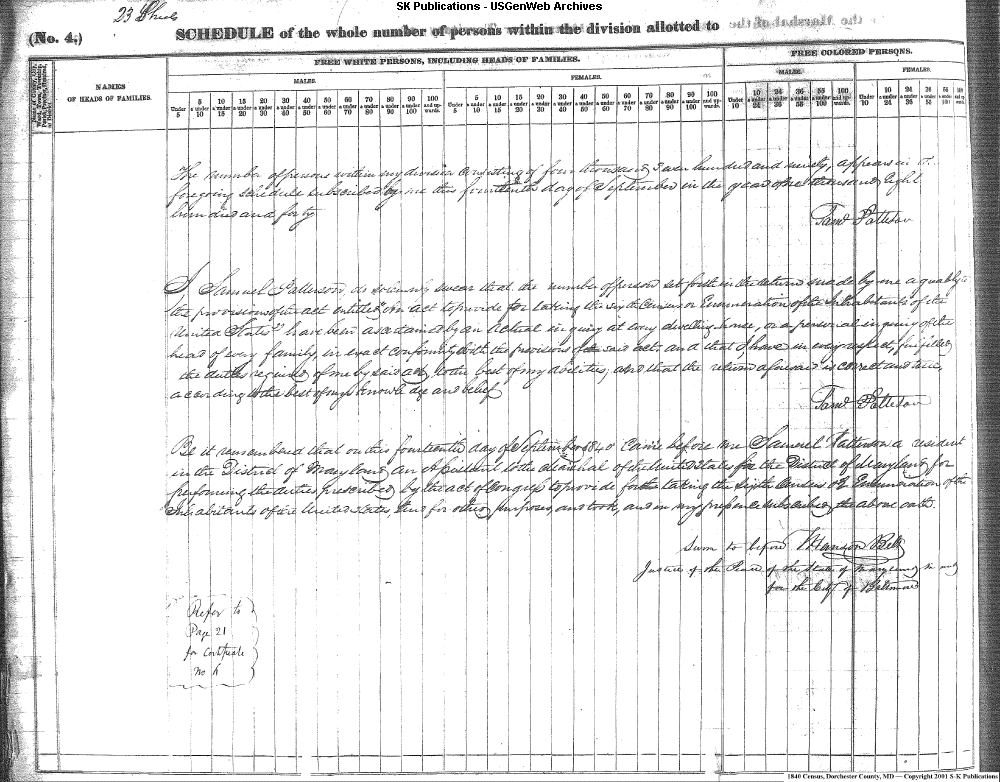 SK Publications - USGenWeb Archives
23 Sheets
(No. 4,) SCHEDULE of the whole number of persons within the division allotted to
the Marshal of the
FREE WHITE PERSONS, INCLUDING HEADS OF FAMILIES. FREE COLORED PERSONS.
NAMES OF HEADS OF FAMILIES.
MALES. FEMALES. MALES. FEMALES.
Under 5 5 & under 10 10 & under 15 15 & under 20 20 & under 30 30 & under 40 40 & under 50 50 & under 60 60 & under 70 70 & under 80 80 & under 90 90 & under 100 100 and upwards. Under 5 5 & under 10 10 & under 15 15 & under 20 20 & under 30 30 & under 40 40 & under 50 50 & under 60 60 & under 70 70 & under 80 80 & under 90 90 & under 100 100 and upwards. Under 10 10 & under 24 24 & under 36 36 & under 55 55 & under 100 100 and upwards. Under 10 10 & under 24 24 & under 36 36 & under 55 55 & under 100 100 and
The number of persons within my division consisting of four thousand, hundred and ninety, appears in
foregoing schedule subscribed by me this fourteenth day of September in the year of one thousand eight
hundred and forty
Saml Patterson
I Samuel Patterson, do solemnly swear that the number of person set forth in the return made by me agreeably to
the provisions of the act entitled "An act to provide for taking the sixth Census or Enumeration of the Inhabitants of the
United States" have been ascertained by an actual inquiry at every dwelling house, or a personal inquiry of the
head of every family, in exact conformity with the provisions of said act, and that I have in every respect, fulfilled
the duties required of me by said act, to the best of my abilities; and that the return aforesaid is correct and true,
according to the best of my knowledge and belief
Saml Patterson
Be it remembered that on this fourteenth day of September 1840 came before me Samuel Patterson a resident
in the District of Maryland, an assistant to the Marshal of the United States for the District of Maryland, for
performing the duties prescribed by the act of Congress to provide for the taking the Sixth Census or Enumeration of the
Inhabitants of the United States, and for other purposes, and took, and in my presence subscribed, the above oath.
Sworn to before Bell
Justice of the Peace of the State of Maryland in and
for the City of Baltimore
Refer to
Page 21
for Certificate
no
1840 Census, Dorchester County, MD — Copyright 2001 S-K Publications